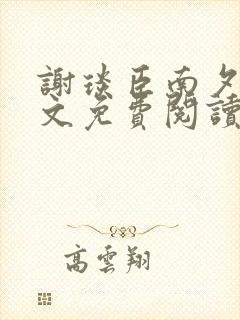 謝琰臣南夕
文免費閱讀
高雲翔